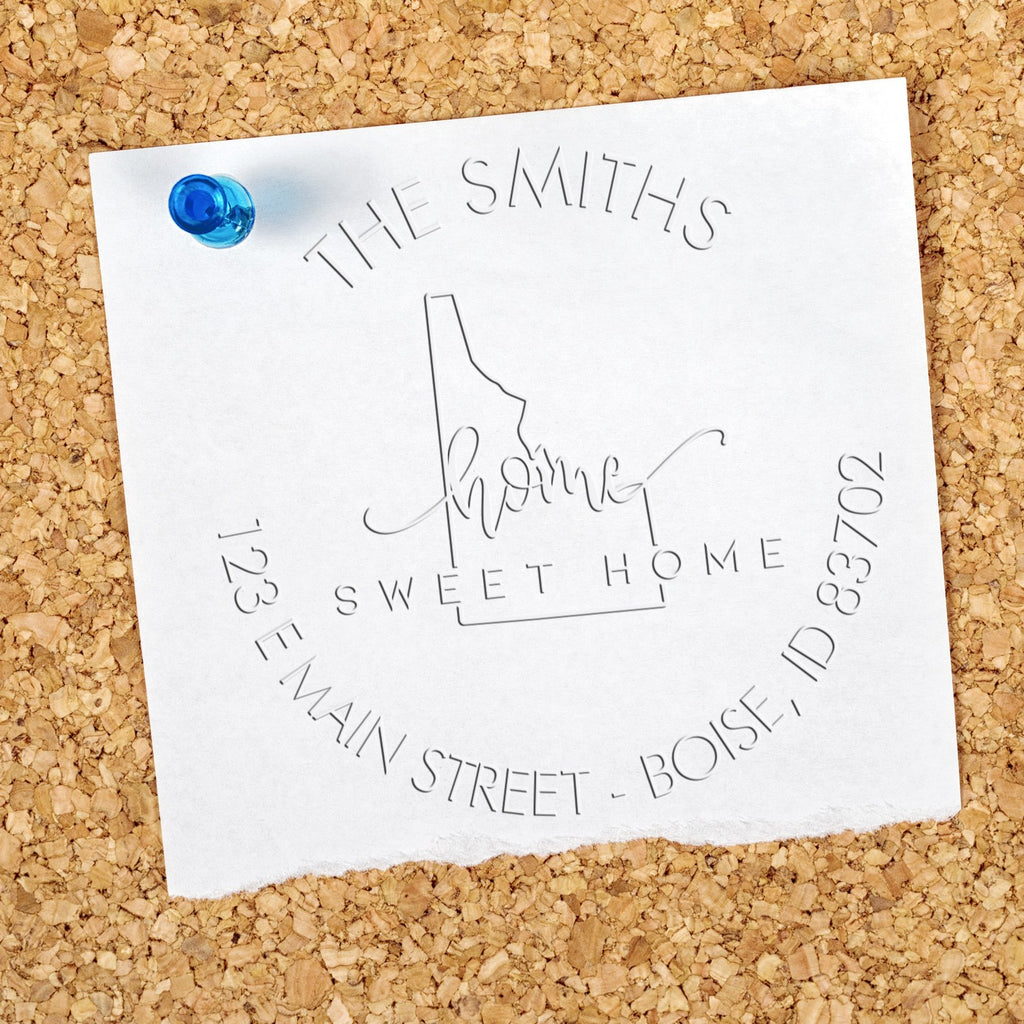 THE SMITHS
home
SWEET HOME
123 E MAIN STREET - BOISE, ID 83702